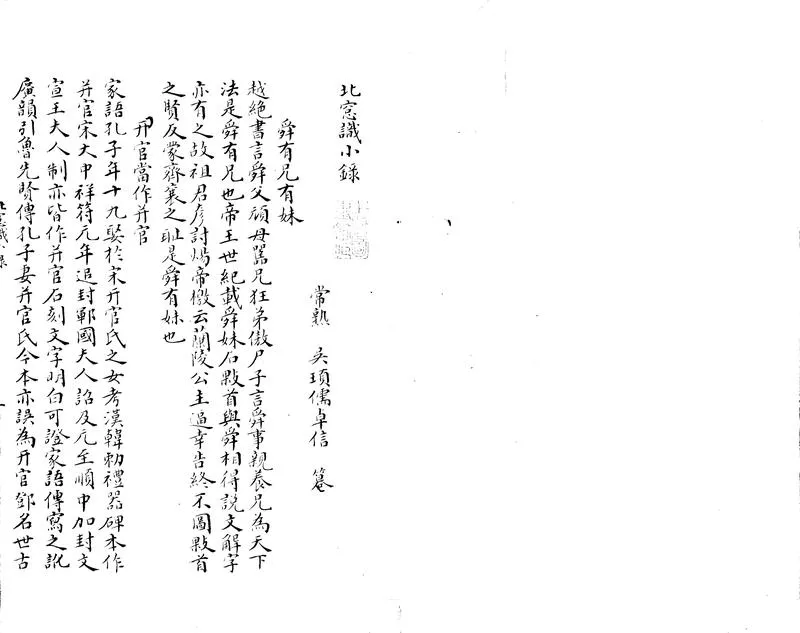 北窓識小錄
常熟 吳頊儒卓信 篹
舜有兄有妹
越絶書言舜父頑母嚚兄狂弟傲尸子言舜事親養兄為天下
法是舜有兄也帝王世紀載舜妹名敤首與舜相得說文解字
亦有之故祖君彥討煬帝檄云蘭陵公主逼幸告終不圖敤首
之賢反蒙齊襄之恥是舜有妹也
幵官當作并官
家語孔子年十九娶於宋幵官氏之女考漢韓勅禮器碑本作
并官宋大中祥符元年追封鄆國夫人詔及元至順中加封文
宣王夫人制亦皆作并官石刻文字明白可證家語傳寫之訛
廣韻引魯先賢傳孔子妻并官氏今本亦誤為幵官鄧名世古
北窓識小錄